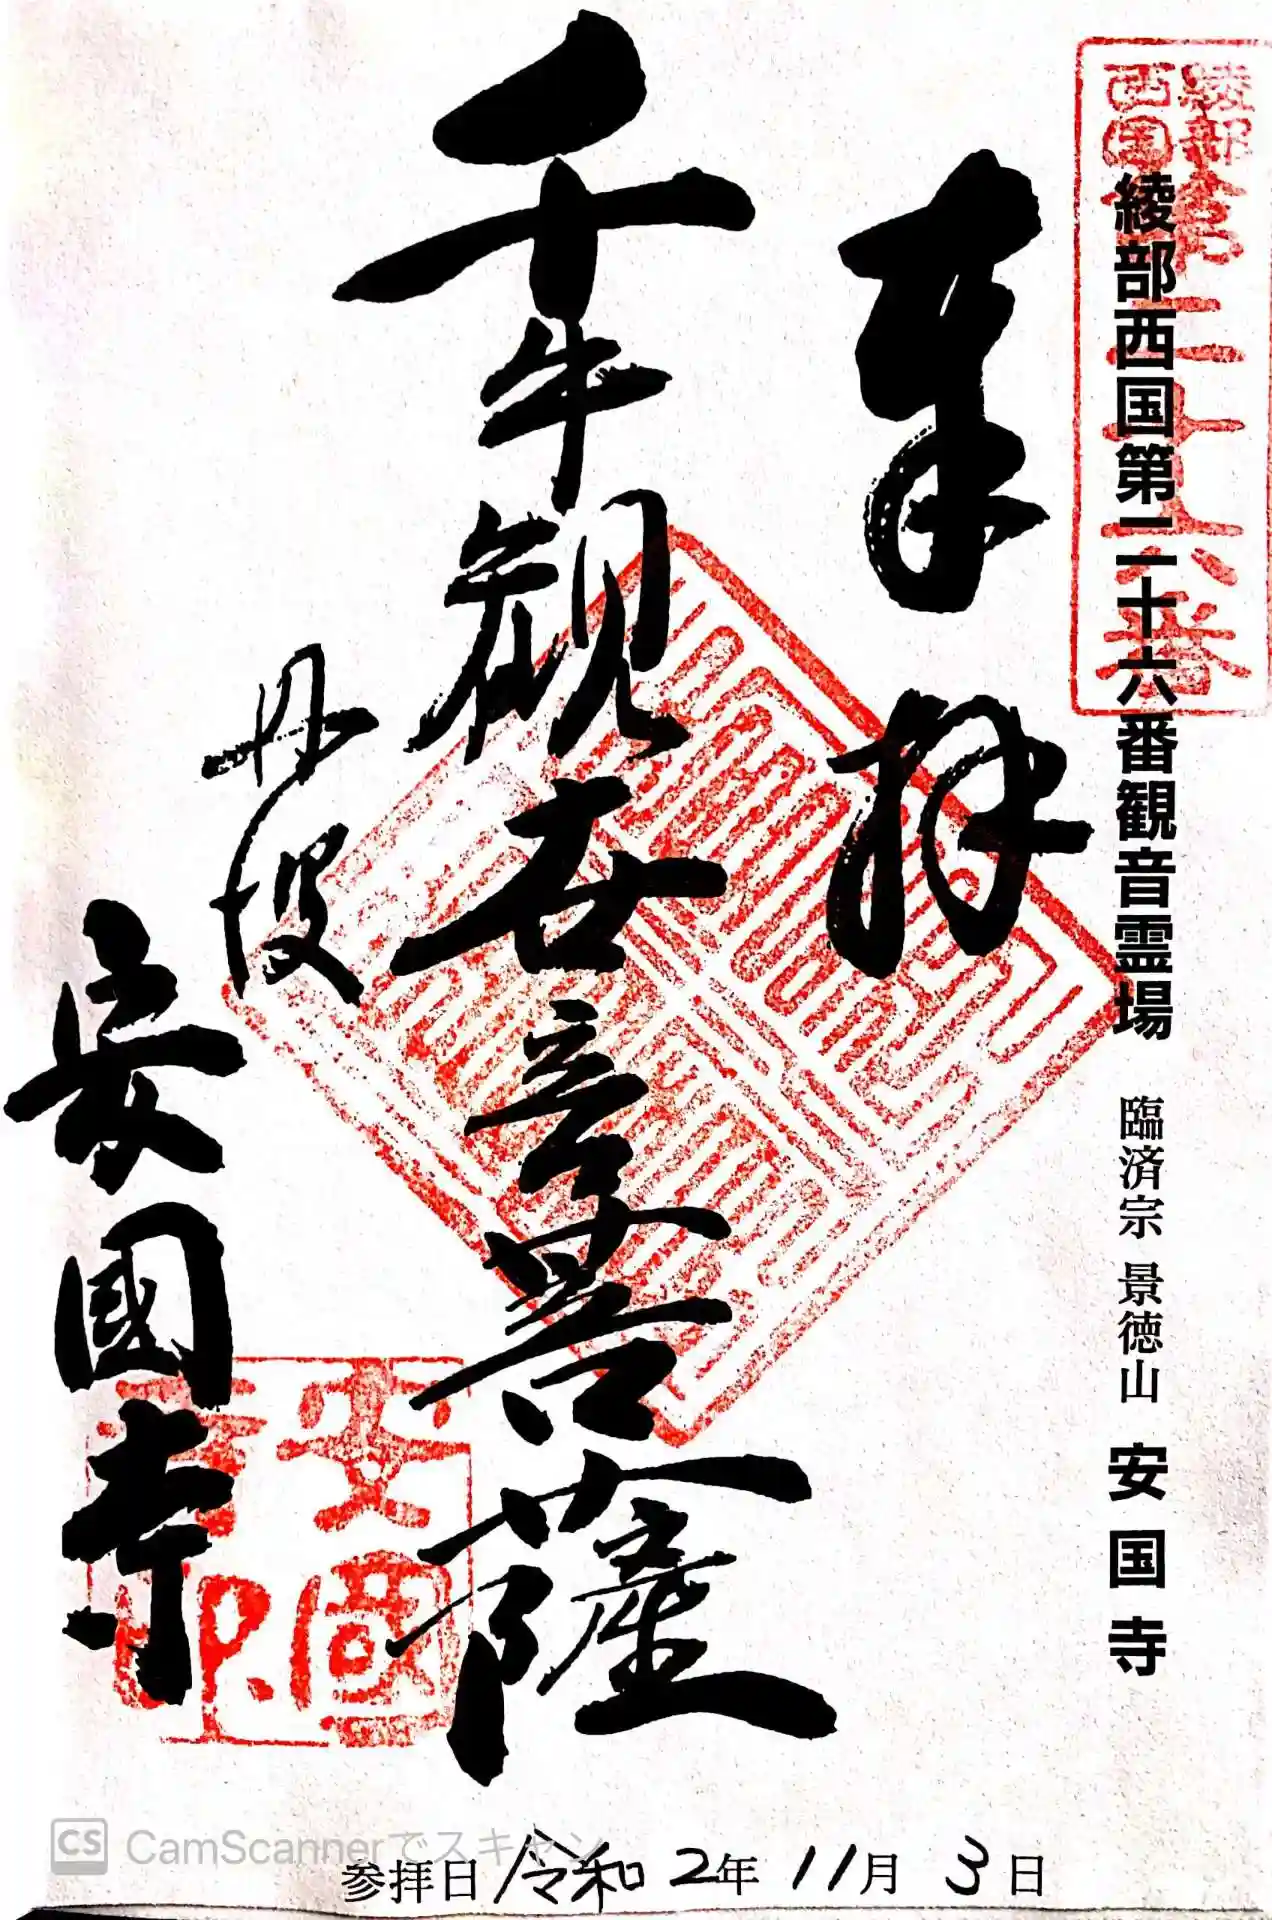 綾部西国第二十六番
綾部西国第二十六番観音霊場 臨済宗 景徳山 安国寺
奉拝
千手観世音菩薩
丹波
安國寺
安國寺印
参拝日 令和2年11月3日
CS CamScannerでスキャン